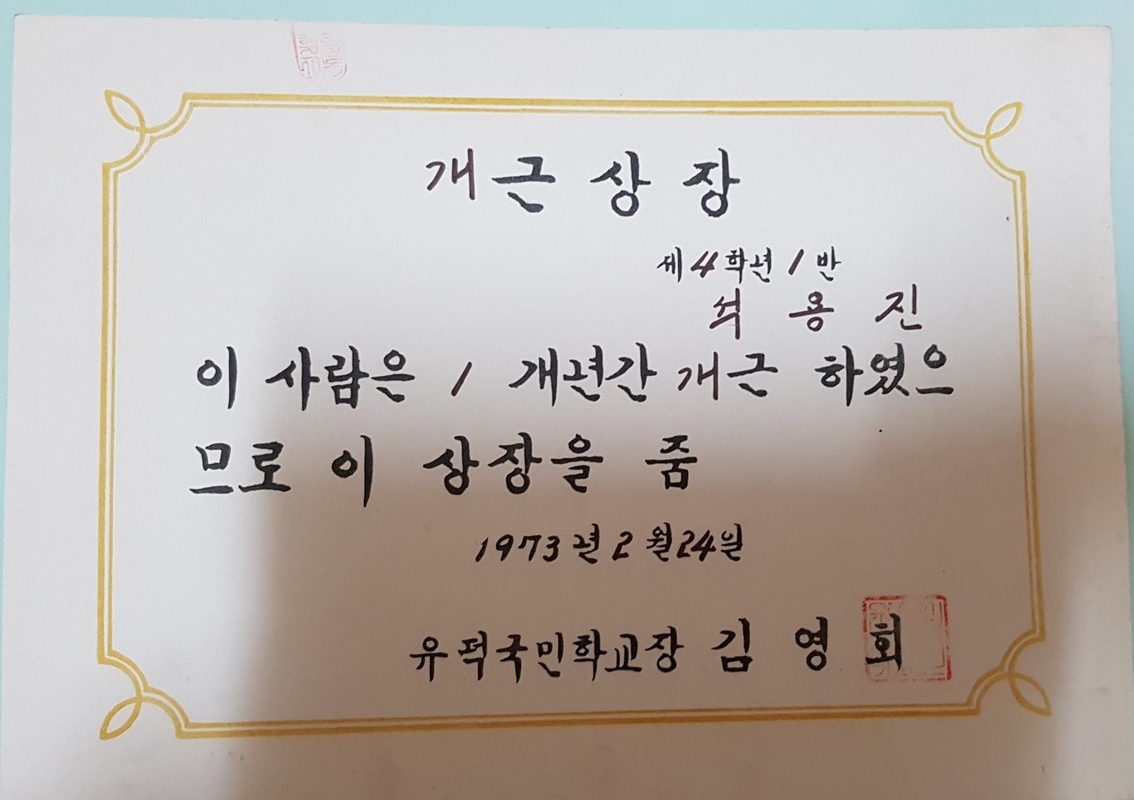 개근상장
제4학년 1반
석용진
이 사람은 1 개년간 개근 하였으
므로 이 상장을 줌
1973년 2월 24일
유덕국민학교장 김영회